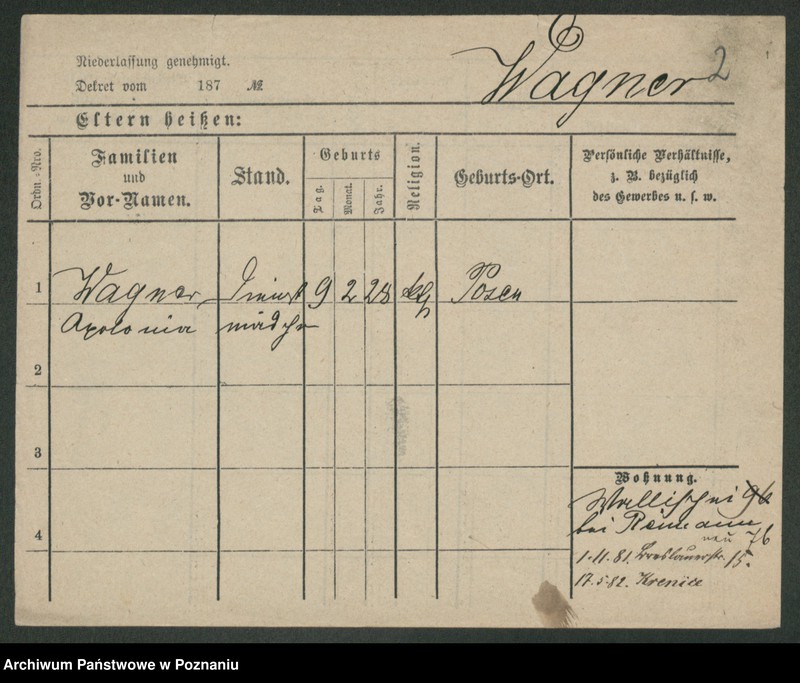 Niederlassung genehmigt.
Dekret vom 187 №
Wagner 2
Eltern heißen:
Ordn.-Nro.
Familien
und
Vor-Namen.
Stand.
Geburts
Tag.
Monat.
Jahr.
Religion.
Geburts-Ort.
Persönliche Verhältnisse,
z. B. bezüglich
des Gewerbes u. s. w.
1 Wagner, Dienst 9 2 28 kth Posen
Apolonia mädchen
2
3
4
Wohnung.
Wallischei 96
bei Reimann
neu 76
1.11.81. Breslauerstr. 15.
17.5.82. Krenice
Archiwum Państwowe w Poznaniu